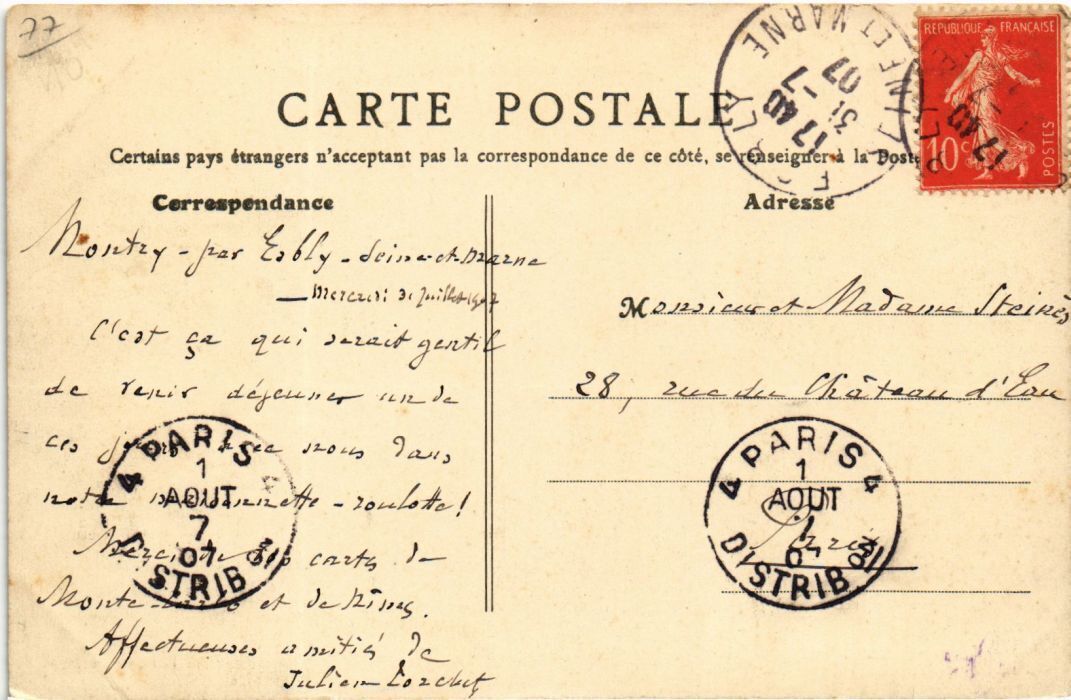 77
CARTE POSTALE
Certains pays étrangers n'acceptant pas la correspondance de ce côté, se renseigner à la Poste
Correspondance
Montry - par Esbly - Seine-et-Marne
Mercredi 31 juillet 1907
C'est ça qui serait gentil
de venir déjeuner un de
ces jours avec nous dans
notre maisonnette-roulotte!
Merci de vos cartes de
Monte-Carlo et de Nîmes.
Affectueuses amitiés de
Julien Torchet
Adresse
Monsieur et Madame Steinès
28, rue du Château d'Eau
Paris
ESBLY
SEINE ET MARNE
17 40
31 - 7
07
REPUBLIQUE FRANÇAISE
10 c
POSTES
17 40
4 PARIS 4
1
AOUT
7
07
DISTRIB ON
4 PARIS 4
1
AOUT
07
DISTRIB ON